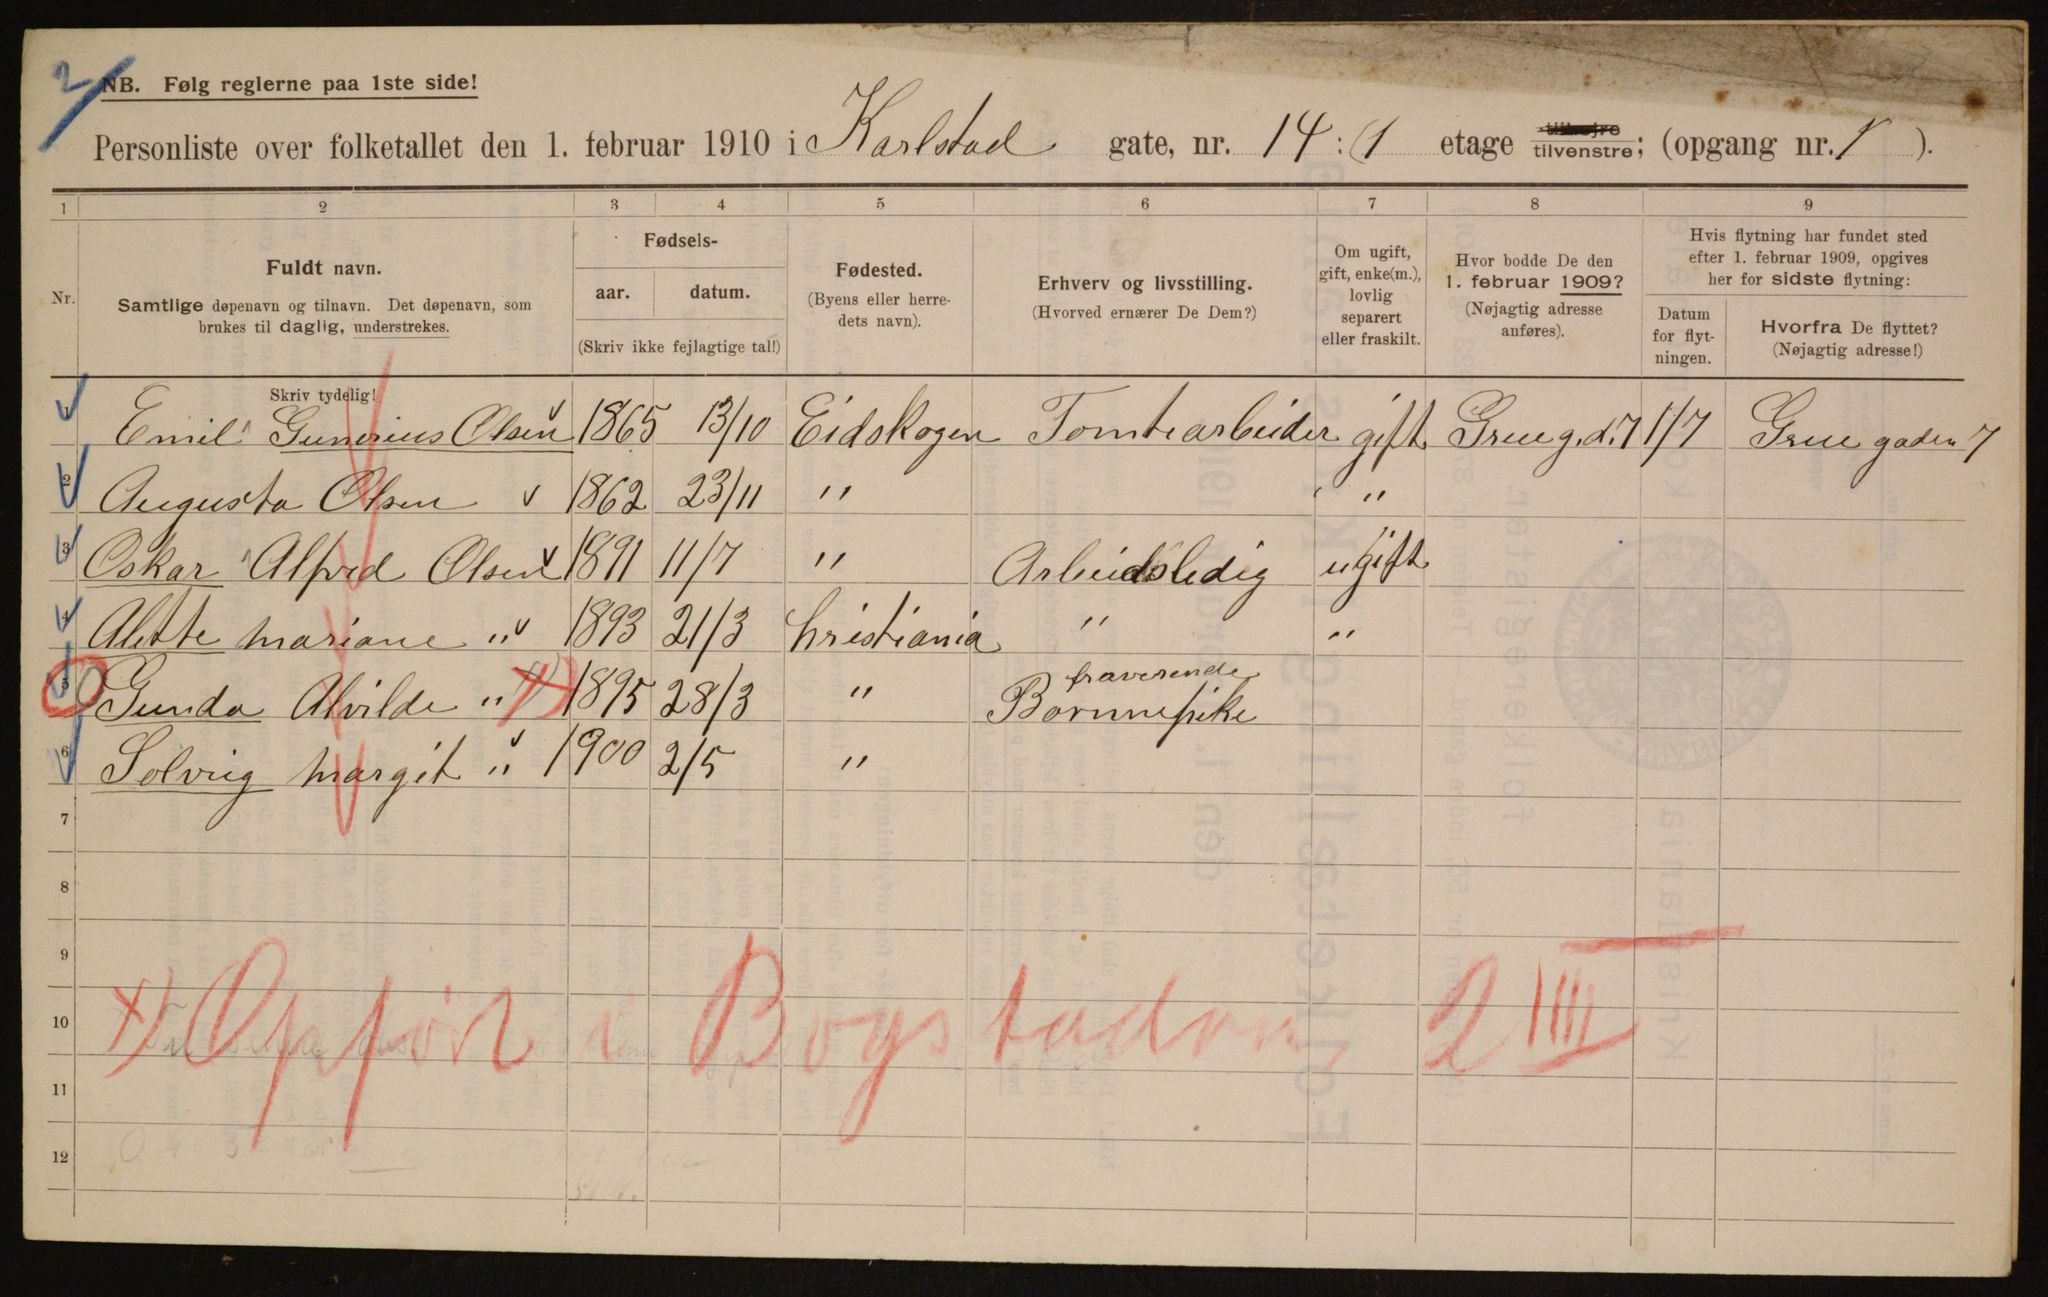 2
NB. Følg reglerne paa 1ste side!
Personliste over folketallet den 1. februar 1910 i Karlstad gate, nr. 14 : 1 etage tilhøjre tilvenstre; (opgang nr. 1 ).
1 2 3 4 5 6 7 8 9
Nr.
Fuldt navn.
Samtlige døpenavn og tilnavn. Det døpenavn, som
brukes til daglig, understrekes.
Fødsels-
aar. datum.
(Skriv ikke fejlagtige tal!)
Fødested.
(Byens eller herre-
dets navn).
Erhverv og livsstilling.
(Hvorved ernærer De Dem?)
Om ugift,
gift, enke(m.),
lovlig
separert
eller fraskilt.
Hvor bodde De den
1. februar 1909?
(Nøjagtig adresse
anføres).
Hvis flytning har fundet sted
efter 1. februar 1909, opgives
her for sidste flytning:
Datum
for flyt-
ningen.
Hvorfra De flyttet?
(Nøjagtig adresse!)
Skriv tydelig!
1 Emil Gunerius Olsen 1865 13/10 Eidskogen Tomtearbeider gift Grueg.d.7 1/7 Grue gaden 7
2 Augusta Olsen 1862 23/11 " "
3 Oskar Alfred Olsen 1891 11/7 " Arbeidsledig ugift
4 Alette Mariane " 1893 21/3 Christiania " "
5 Gunda Alvilde " x) 1895 28/3 " fraverende
Bornnepike
6 Solveig Margit " 1900 2/5 "
7
8
9
10
11
12
x) Opført i Bogstadvn, 2 IIII